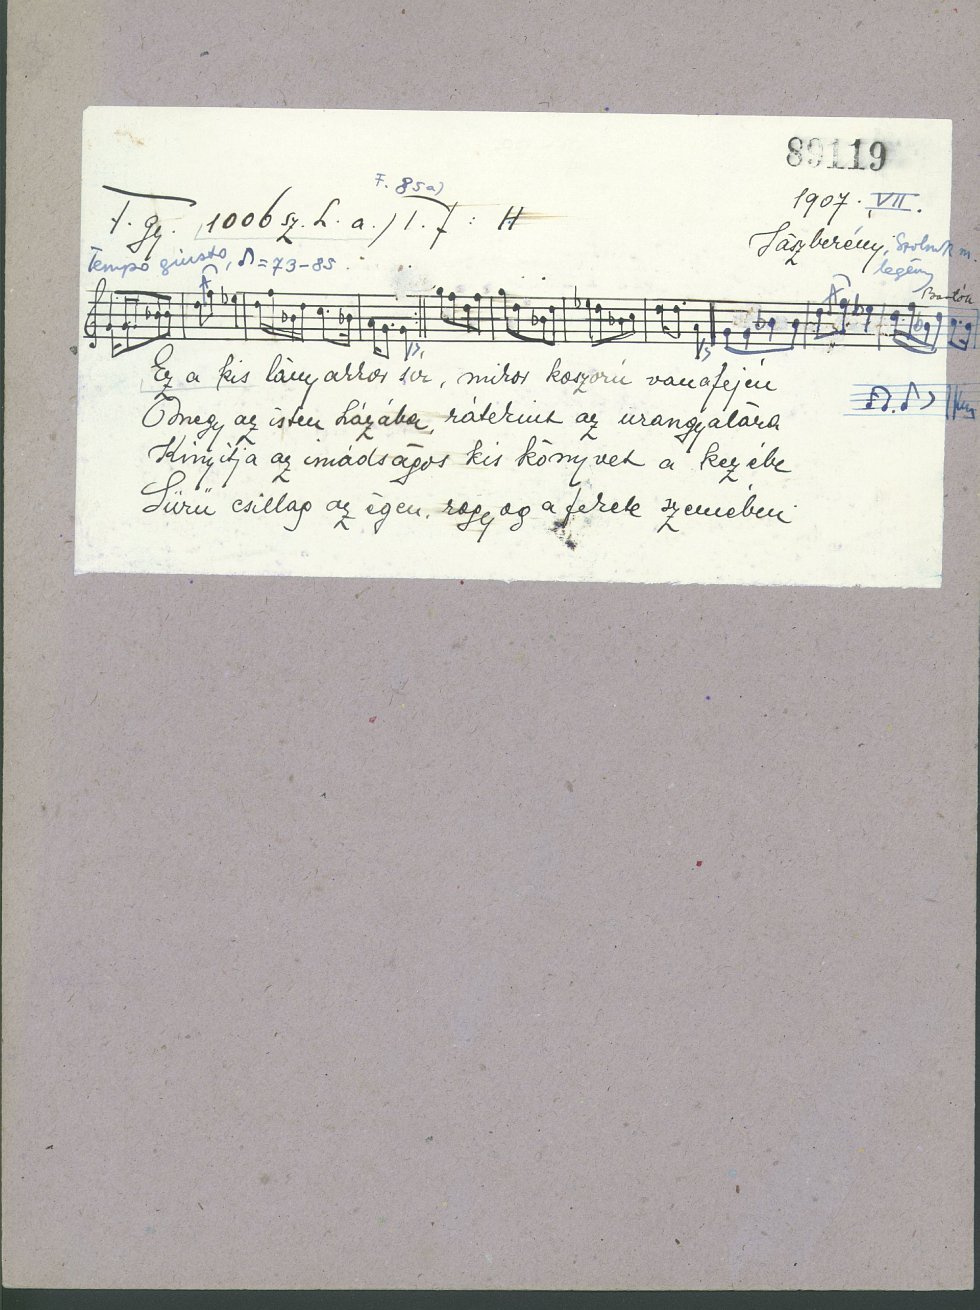 89119
F. 85a)
1907. VII.
T. gy. 1006 sz. L. a.) T. f : H
Jászberény, Szolnok m.
Tempo giusto, ♪=73-85
legény
Bartók
Ez a kis lány akkor sir, mikor koszorú van a fején
Ő megy az isten házába, ráterint az urangyalára
Kinyitja az imádságos kis könyvet a kezébe
Sürü csillag az égen, ragyog a fekete szemében